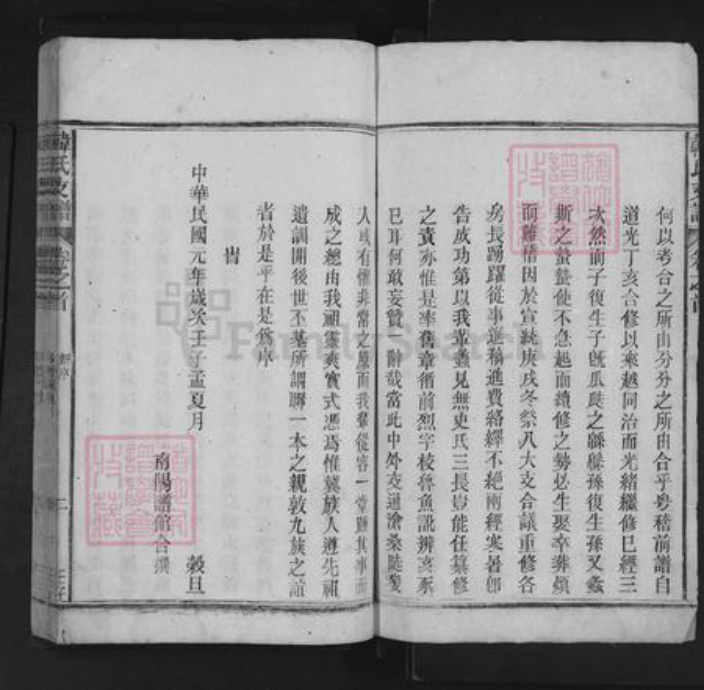 何以考合之所由分分之所由合乎夥稽前譜自
道光丁亥合修以來越同治而光緒繼修已經三
次然而子復生子旣瓜瓞之緜緜孫復生孫又螽
斯之蟄蟄使不急起而續修之勢必生娶卒葬煩
而難稽因於宣統庚戌冬祭八大支合議重修各
房長踴躍從事送稿進費絡繹不絕兩經寒暑卽
告成功第以我輩蠡見無史氏三長豈能任纂修
之責亦惟是率舊章循前烈字校魯魚訛辨亥豕
已耳何敢妄贊一辭哉當此中外交通滄桑陡變
人或有懼非常之原而我輩從容一堂與其事而
成之總由我祖靈爽實式憑焉惟冀族人遵先祖
遺訓開後世丕基所謂聯一本之親敦九族之誼
者於是乎在是爲序
旹
中華民國元年歲次壬子孟夏月 穀旦
南陽譜館合撰
韓氏支譜 卷之首 新序 二 壬子
FamilySearch